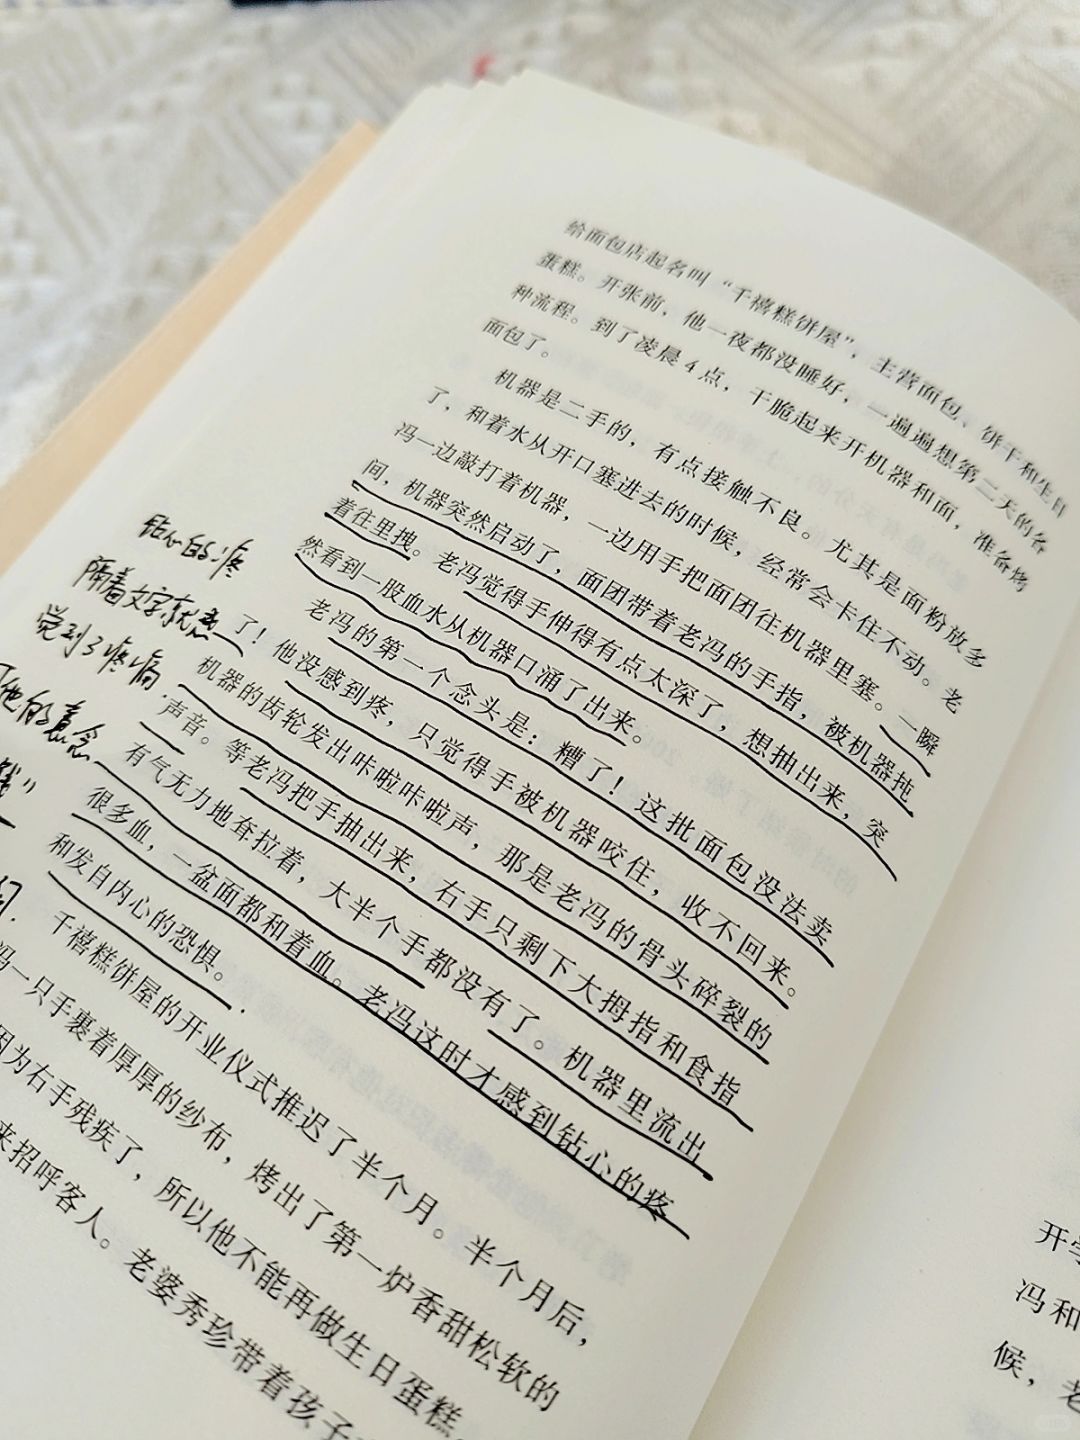 给面包店起名叫“千禧糕饼屋”，主营面包、饼干和生日
蛋糕。开张前，他一夜都没睡好，一遍遍想第二天的各
种流程。到了凌晨4点，干脆起来开机器和面，准备烤
面包了。
机器是二手的，有点接触不良。尤其是面粉放多
了，和着水从开口塞进去的时候，经常会卡住不动。老
冯一边敲打着机器，一边用手把面团往机器里塞。一瞬
间，机器突然启动了，面团带着老冯的手指，被机器扽
着往里拽。老冯觉得手伸得有点太深了，想抽出来，突
然看到一股血水从机器口涌了出来。
老冯的第一个念头是：糟了！这批面包没法卖
了！他没感到疼，只觉得手被机器咬住，收不回来。
机器的齿轮发出咔啦咔啦声，那是老冯的骨头碎裂的
声音。等老冯把手抽出来，右手只剩下大拇指和食指
有气无力地耷拉着，大半个手都没有了。机器里流出
很多血，一盆面都和着血。老冯这时才感到钻心的疼
和发自内心的恐惧。
千禧糕饼屋的开业仪式推迟了半个月。半个月后，
冯一只手裹着厚厚的纱布，烤出了第一炉香甜松软的
因为右手残疾了，所以他不能再做生日蛋糕，
来招呼客人。老婆秀珍带着孩子
钻心的疼
隔着文字就感
觉到了疼痛.
他的意念
钱”
开学
冯和
候，老